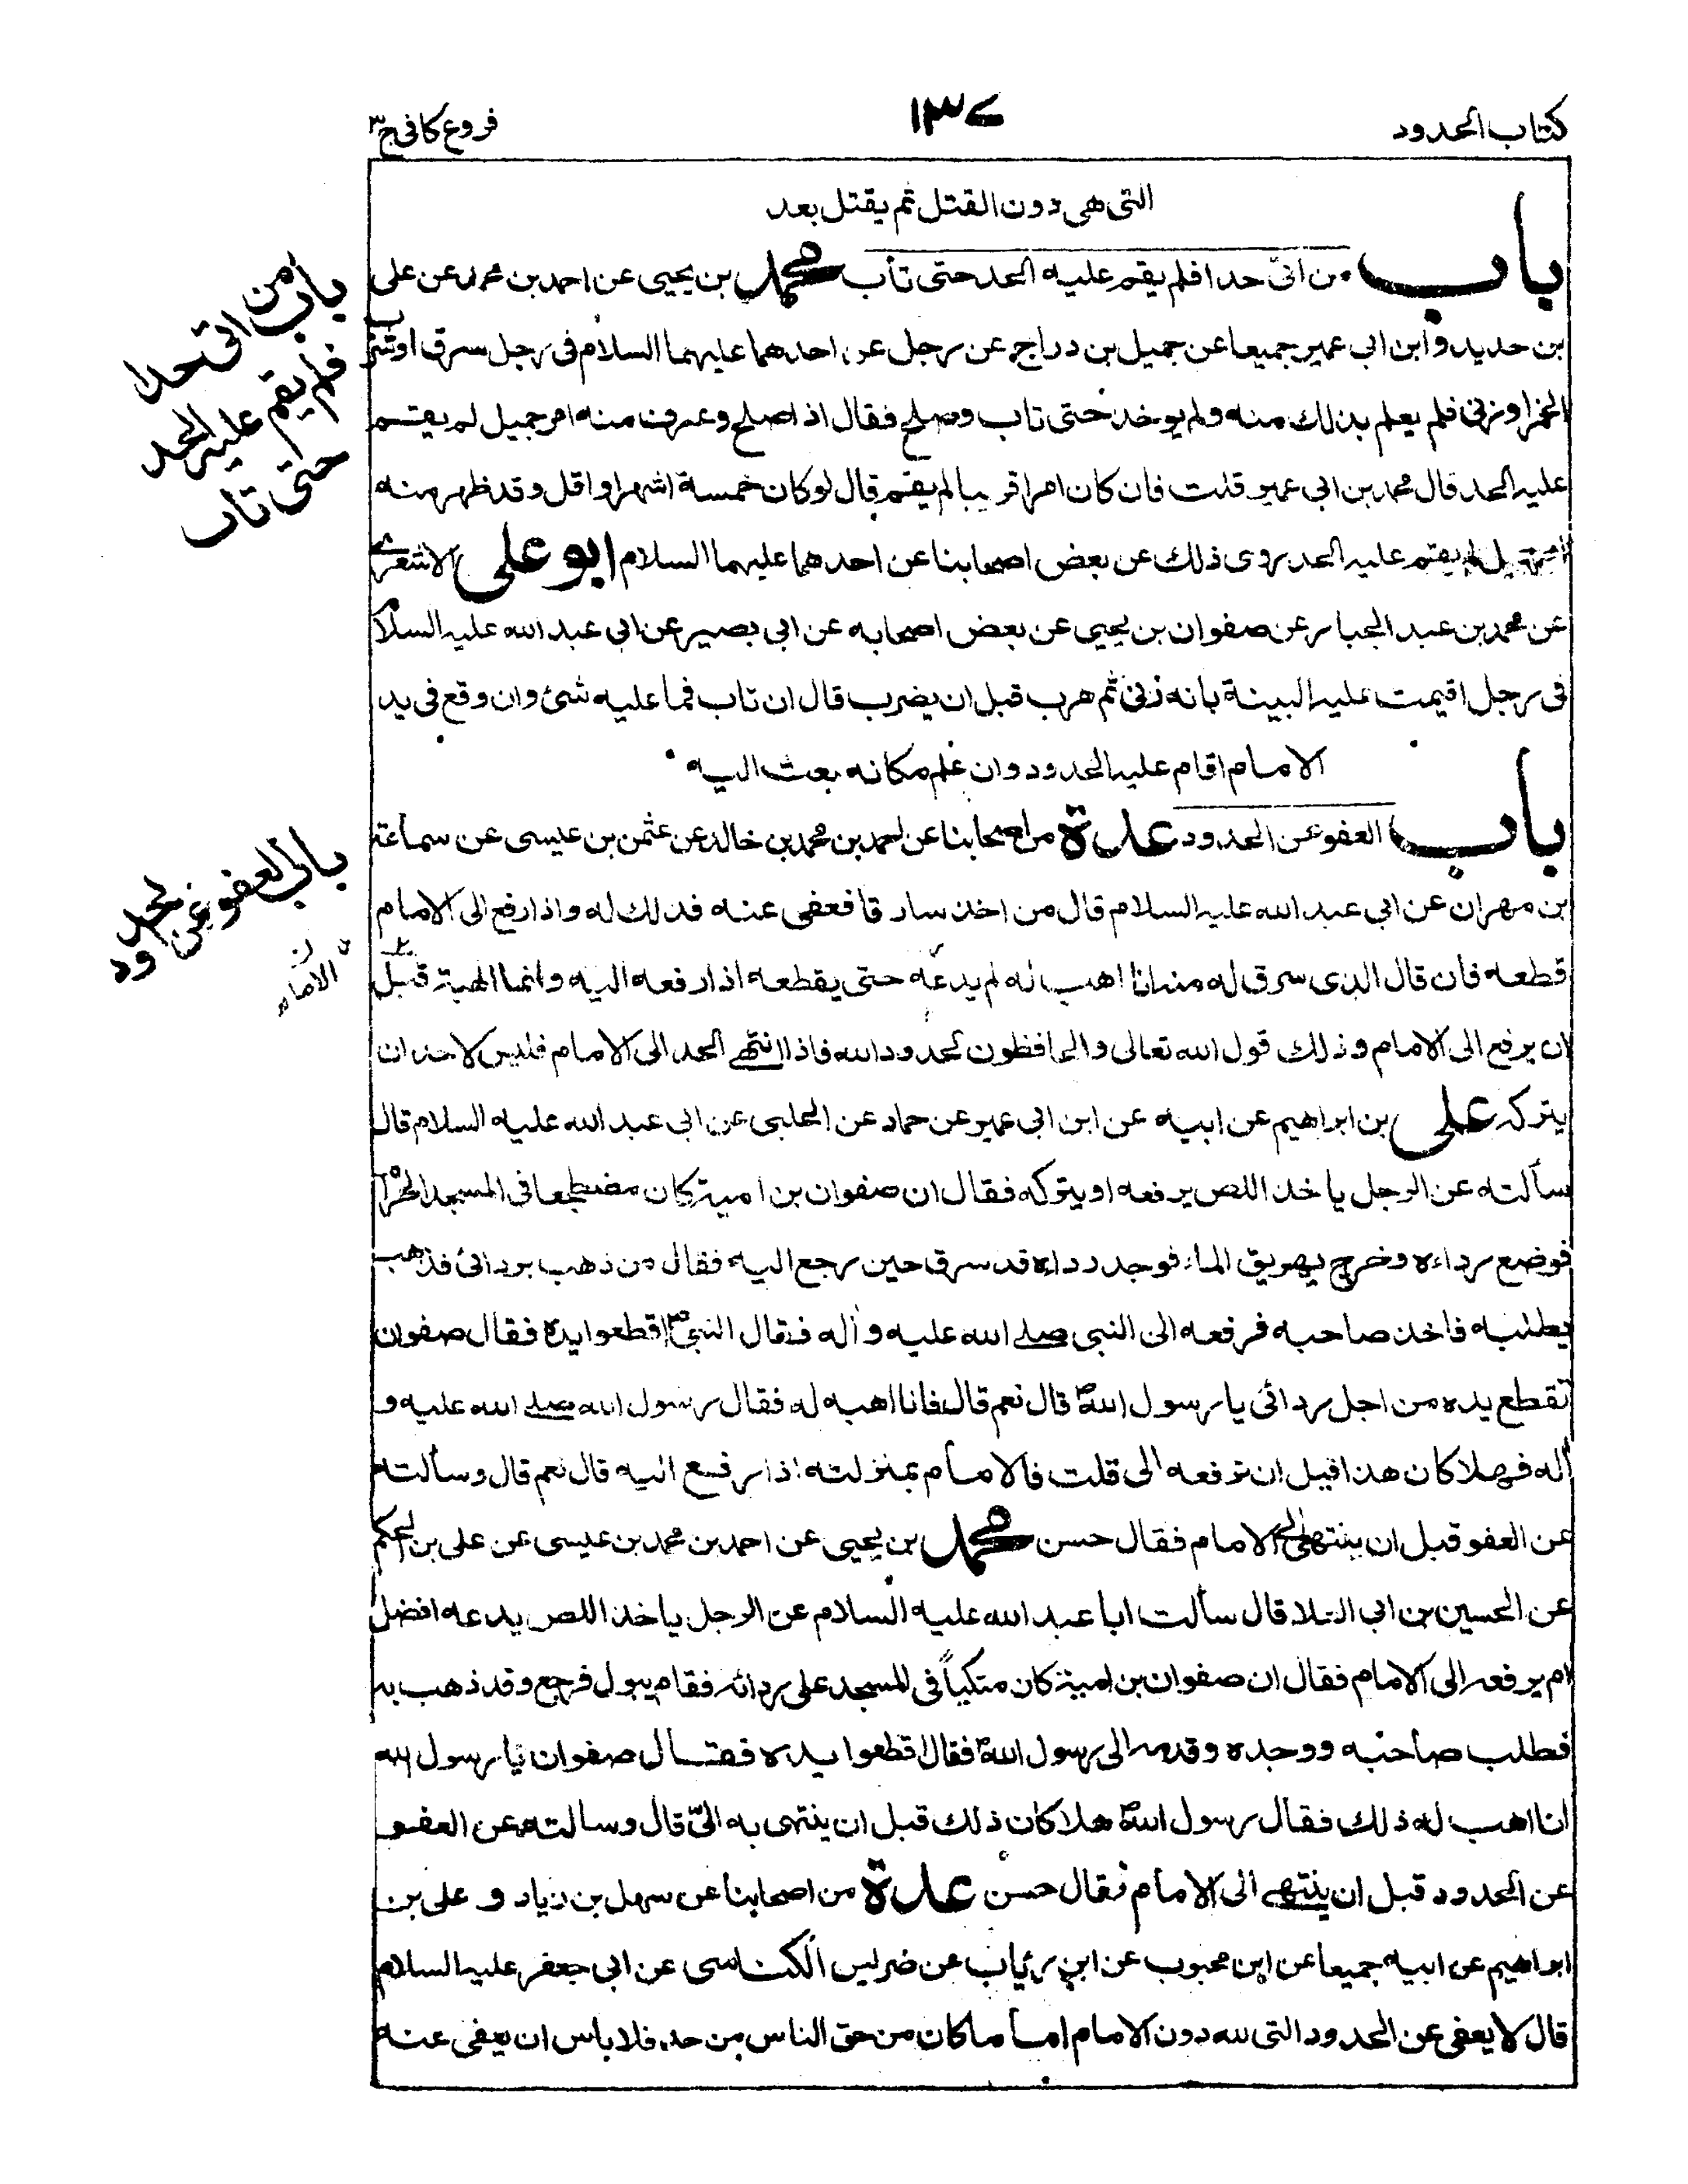 كتاب الحدود
١٣٧
فروع كافى ج٣
التى هى دون القتل ثم يقتل بعد
باب من اتى حدا فلم يقم عليه الحد حتى تاب محمد بن يحيى عن احمد بن محمد عن على
بن حديد وابن ابى عمير جميعا عن جميل بن دراج عن رجل عن احدهما عليهما السلام فى رجل سرق او شرب
الخمر او زنى فلم يعلم بذلك منه ولم يوخذ حتى تاب وصلح فقال اذا صلح وعرف منه امر جميل لم يقم
عليه الحد قال محمد بن ابى عمير قلت فان كان امرا قريبا لم يقم قال لو كان خمسة اشهر او اقل وقد ظهر منه
امر جميل لم يقم عليه الحد روى ذلك عن بعض اصحابنا عن احدهما عليهما السلام ابو على الاشعرى
عن محمد بن عبد الجبار عن صفوان بن يحيى عن بعض اصحابه عن ابى بصير عن ابى عبد الله عليه السلام
فى رجل اقيمت عليه البينة بانه زنى ثم هرب قبل ان يضرب قال ان تاب فما عليه شئ وان وقع فى يد
الامام اقام عليه الحدود وان علم مكانه بعث اليه
باب العفو عن الحدود عدة من اصحابنا عن احمد بن محمد بن خالد عن عثمن بن عيسى عن سماعة
بن مهران عن ابى عبد الله عليه السلام قال من اخذ سارقا فعفى عنه فذلك له واذا رفع الى الامام
قطعه فان قال الذى سرق له منه انا اهب له لم يدعه حتى يقطعه اذا رفعه اليه وانما الهبة قبل
ان يرفع الى الامام وذلك قول الله تعالى والحافظون لحدود الله فاذا انتهى الحد الى الامام فليس لاحد ان
يتركه على بن ابراهيم عن ابيه عن ابن ابى عمير عن حماد عن الحلبى عن ابى عبد الله عليه السلام قال
سألته عن الرجل ياخذ اللص يرفعه او يتركه فقال ان صفوان بن امية كان مضطجعا فى المسجد الحرام
فوضع رداءه وخرج يهريق الماء فوجد رداءه قد سرق حين رجع اليه فقال من ذهب بردائى فذهب
يطلبه فاخذ صاحبه فرفعه الى النبى صلى الله عليه وآله فقال النبى ص اقطعوا يده فقال صفوان
تقطع يده من اجل ردائى يا رسول الله ص قال نعم قال فانا اهبه له فقال رسول الله صلى الله عليه و
آله فهلا كان هذا قبل ان ترفعه الى قلت فالامام بمنزلته اذا رفع اليه قال نعم قال وسألته
عن العفو قبل ان ينتهى الى الامام فقال حسن محمد بن يحيى عن احمد بن محمد بن عيسى عن على بن الحكم
عن الحسين بن ابى العلا قال سألت ابا عبد الله عليه السلام عن الرجل ياخذ اللص يدعه افضل
ام يرفعه الى الامام فقال ان صفوان بن امية كان متكيا فى المسجد على ردائه فقام يبول فرجع وقد ذهب به
فطلب صاحبه ووجده وقدمه الى رسول الله ص فقال اقطعوا يده فقال صفوان يا رسول الله
انا اهب له ذلك فقال رسول الله ص هلا كان ذلك قبل ان ينتهى به الىّ قال وسالته عن العفو
عن الحدود قبل ان ينتهى الى الامام فقال حسن عدة من اصحابنا عن سهل بن زياد و على بن
ابراهيم عن ابيه جميعا عن ابن محبوب عن ابن رئاب عن ضريس الكناسى عن ابى جعفر عليه السلام
قال لا يعفى عن الحدود التى لله دون الامام اما ما كان من حق الناس من حد فلا باس ان يعفى عنه
باب من اتى حدا
فلم يقم عليه الحد
حتى تاب
باب العفو عن الحدود
الامام